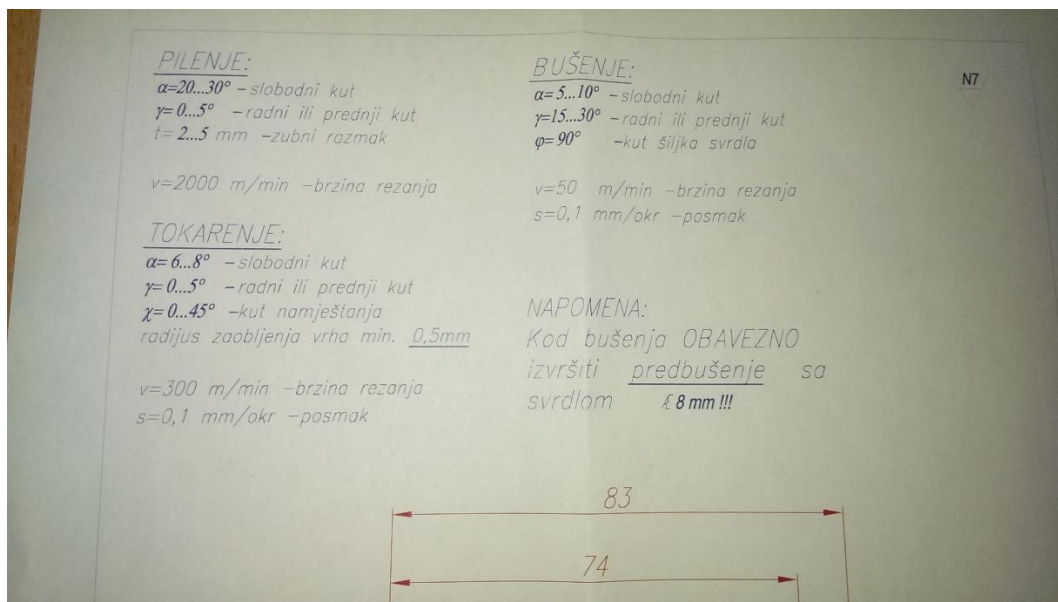 PILENJE:
α=20...30° -slobodni kut
γ=0...5° -radni ili prednji kut
t=2...5 mm -zubni razmak
v=2000 m/min -brzina rezanja
TOKARENJE:
α=6...8° -slobodni kut
γ=0...5° -radni ili prednji kut
χ=0...45° -kut namještanja
radijus zaobljenja vrha min. 0,5mm
v=300 m/min -brzina rezanja
s=0,1 mm/okr -posmak
BUŠENJE:
α=5...10° -slobodni kut
γ=15...30° -radni ili prednji kut
φ=90° -kut šiljka svrdla
v=50 m/min -brzina rezanja
s=0,1 mm/okr -posmak
NAPOMENA:
Kod bušenja OBAVEZNO
izvršiti predbušenje sa
svrdlom Æ 8 mm !!!
N7
83
74